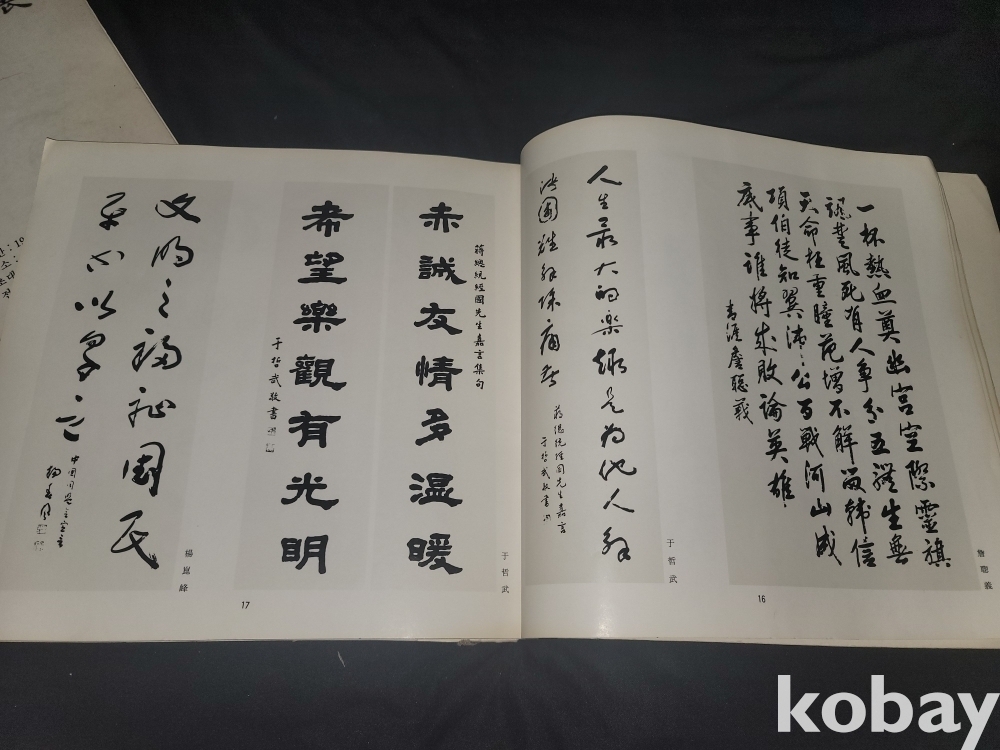 一杯熱血奠幽宮空際靈旗
楚風死有人爭分五體生無
天命枉重瞳范增不解留韓信
項伯徒知翼沛公百戰河山成
底事誰將成敗論英雄
青涯詹聰義
詹聰義
16
人生最大的樂趣是為他人解
決困難解除痛苦
蔣總統經國先生嘉言
于哲武敬書
于哲武
蔣總統經國先生嘉言集句
赤誠友情多溫暖
希望樂觀有光明
于哲武敬書
于哲武
17
文明之福祉國民
平均以享之
中國同盟會宣言
楊崑峰
kobay